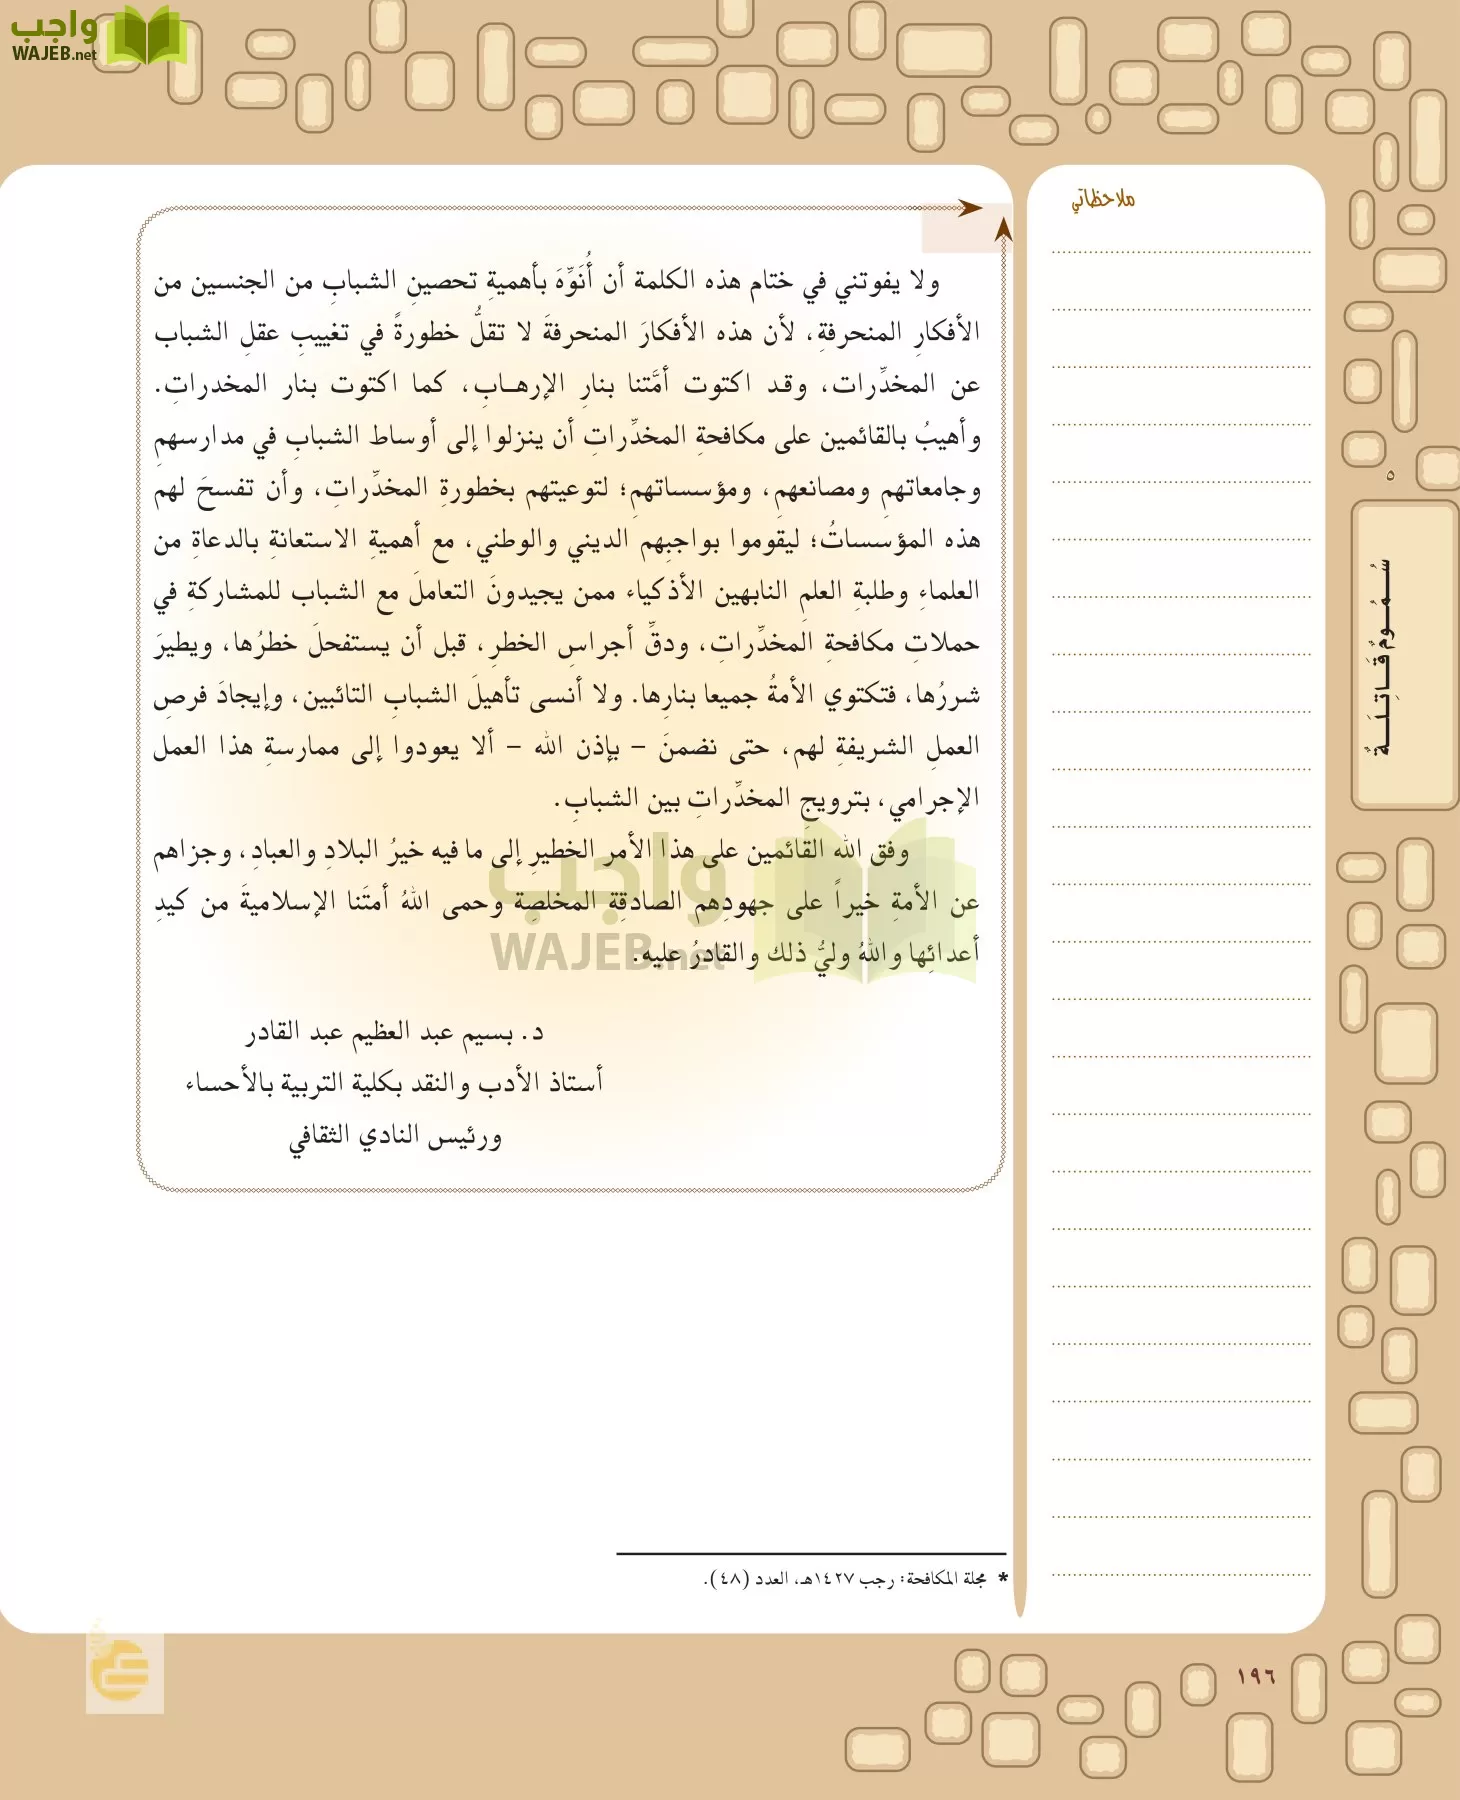 واجب
WAJEB.net
ملاحظاتي
ولا يفوتني في ختام هذه الكلمة أن أُنَوِّهَ بأهميةِ تحصينِ الشبابِ من الجنسين من
الأفكارِ المنحرفةِ، لأن هذه الأفكارَ المنحرفةَ لا تقلُّ خطورةً في تغييبِ عقلِ الشباب
عن المخدِّرات، وقد اكتوت أمَّتنا بنارِ الإرهـابِ، كما اكتوت بنار المخدراتِ.
وأهيبُ بالقائمين على مكافحةِ المخدِّراتِ أن ينزلوا إلى أوساط الشبابِ في مدارسهمِ
وجامعاتهمِ ومصانعهمِ، ومؤسساتهمِ؛ لتوعيتهم بخطورةِ المخدِّراتِ، وأن تفسحَ لهم
هذه المؤسساتُ؛ ليقوموا بواجبِهم الديني والوطني، مع أهميةِ الاستعانةِ بالدعاةِ من
العلماءِ وطلبةِ العلمِ النابهين الأذكياء ممن يجيدونَ التعاملَ مع الشباب للمشاركةِ في
حملاتِ مكافحةِ المخدِّراتِ، ودقِّ أجراسِ الخطرِ، قبل أن يستفحلَ خطرُها، ويطيرَ
شررُها، فتكتوي الأمةُ جميعا بنارِها. ولا أنسى تأهيلَ الشبابِ التائبين، وإيجادَ فرصِ
العملِ الشريفةِ لهم، حتى نضمنَ – بإذن الله – ألا يعودوا إلى ممارسةِ هذا العمل
الإجرامي، بترويجِ المخدِّراتِ بين الشبابِ.
وفق الله القائمين على هذا الأمر الخطيرِ إلى ما فيه خيرُ البلادِ والعبادِ، وجزاهم
عن الأمةِ خيراً على جهودِهم الصادقةِ المخلصةِ وحمى اللهُ أمتَنا الإسلاميةَ من كيدِ
أعدائِها واللهُ وليُّ ذلك والقادرُ عليه.
واجب
WAJEB.net
د. بسيم عبد العظيم عبد القادر
أستاذ الأدب والنقد بكلية التربية بالأحساء
ورئيس النادي الثقافي
* مجلة المكافحة: رجب ١٤٢٧هـ، العدد (٤٨).
٥
سُـمُـومٌ قَـاتِـلَـةٌ
١٩٦